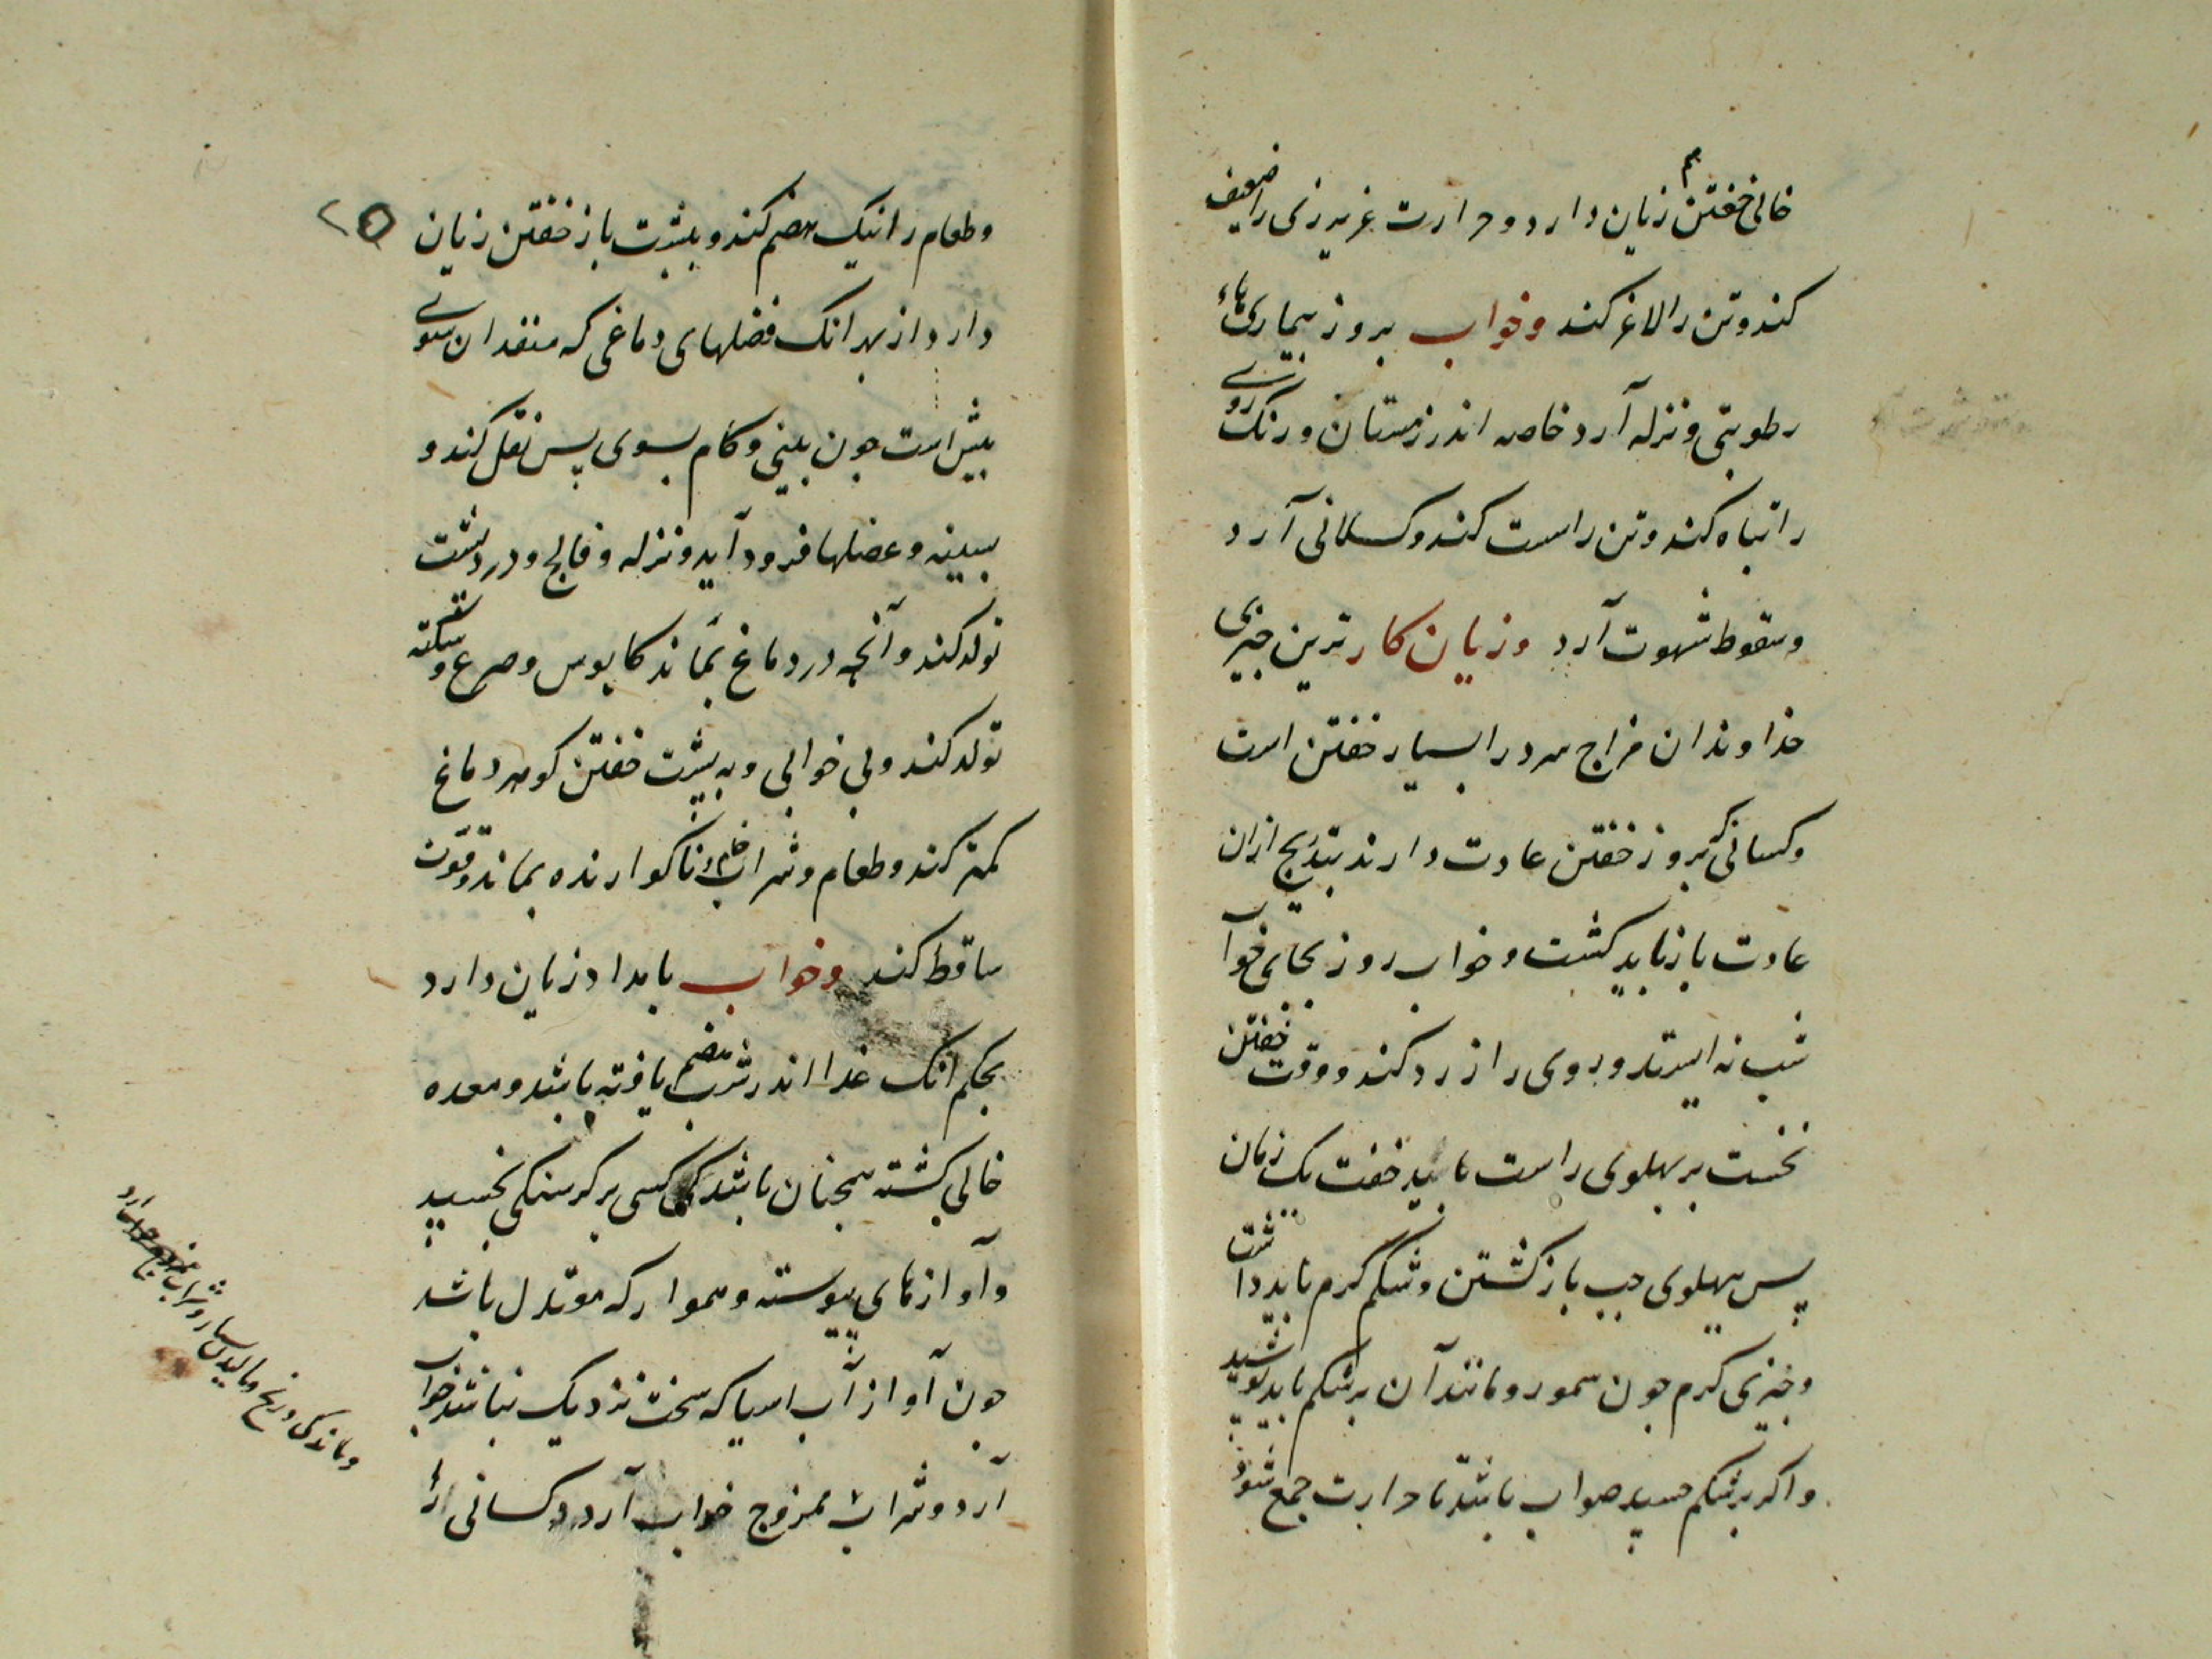 خالی خفتن هم زیان دارد و حرارت غریزی را ضعیف
کند و تن را لاغر کند و خواب بروز بیماریهاء
رطوبتی و نزله آرد خاصه اندر زمستان و رنک روی
را تباه کند و تن را سست کند و کسلانی آرد
و سقوط شهوت آرد و زیان کار ترین چیزی
خداوندان مزاج سرد را بسیار خفتن است
و کسانی که بروز خفتن عادت دارند بتدریج ازان
عادت باز باید کشت و خواب روز بجای خواب
شب نه ایستد و روی را زرد کند و وقت خفتن
نخست بر پهلوی راست باید خفت یک زمان
پس بپهلوی چپ باز کشتن و شکم کرم باید داشت
و چیزی کرم چون سمور و مانند آن بر شکم باید پوشید
و اکر بر شکم خسپد صواب باشد تا حرارت جمع شود
و طعام را نیک هضم کند و بپشت باز خفتن زیان
دارد از بهر انک فضلهای دماغی که منفذ ان سوی
پیش است چون بینی و کام بسوی پس نقل کند و
بسینه و عضلها فرود آید و نزله و فالج و درد پشت
تولد کند و آنچه در دماغ بماند کابوس و صرع و سکته
تولد کند و بی خوابی و به پشت خفتن کوهر دماغ
کمتر کند و طعام و شراب خام و ناکوارنده بماند و قوت
ساقط کند و خواب بامداد زیان دارد
بحکم انک غذا اندر شب هضم یافته باشد و معده
خالی کشته همچنان باشد که کسی بر کرسنکی بخسپد
و آوازهای پیوسته و هموار که معتدل باشد
چون آواز آب اسیا که سخت نزدیک نباشد خواب
آرد و شراب ممزوج خواب آرد و کسانی را
و ماندکی و رنج و مالیدن بسیار و شراب ممزوج خواب آرد